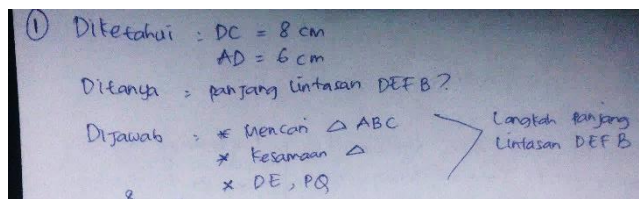 ① Diketahui : DC = 8 cm
AD = 6 cm
Ditanya : panjang lintasan DEFB?
Dijawab : * Mencari △ ABC
* Kesamaan △
* DE, PQ
Langkah panjang
lintasan DEFB
8